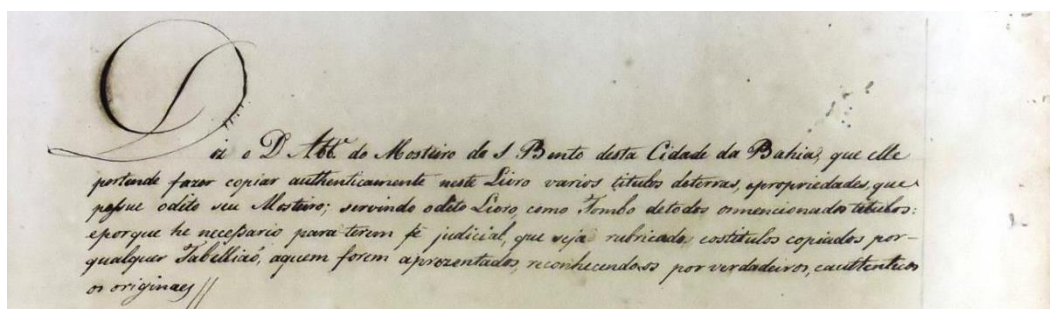 Diz o D. Abb.e do Mosteiro de S Bento desta Cidade da Bahia, que elle
pertende fazer copiar authenticamente neste Livro varios titulos deterras, epropriedades, que
poſsue odito seu Mosteiro; servindo odito Livro, como Tombo detodos osmencionados titulos:
eporque he neceſsario para terem fé judicial, que seja rubricado, eostitulos copiados por-
qualquer Tabelliaõ, aquem forem aprezentados, reconhecendo-os por verdadeiros, eauthenticos
os originaes //